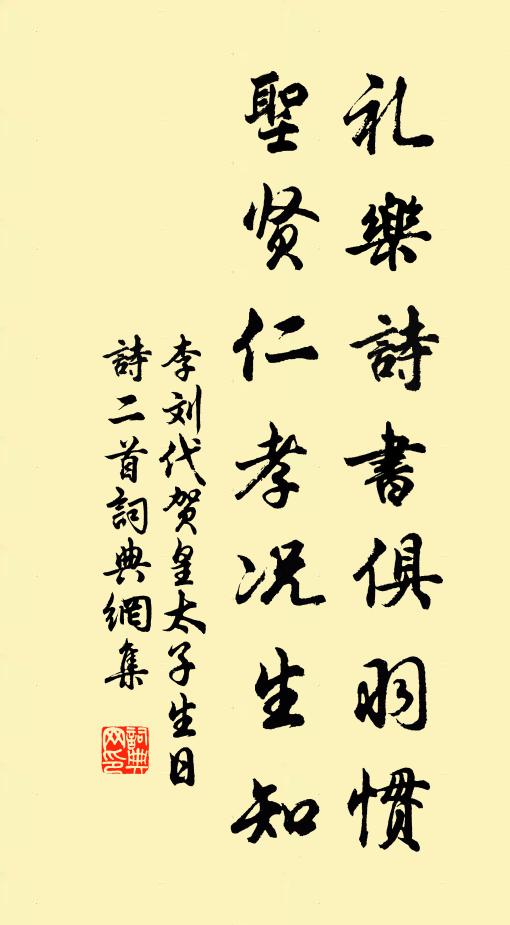 礼樂詩書俱羽慣
聖贤仁孝况生知
李刘代贺皇太子生日
詩二首詞典網集
詞典網印